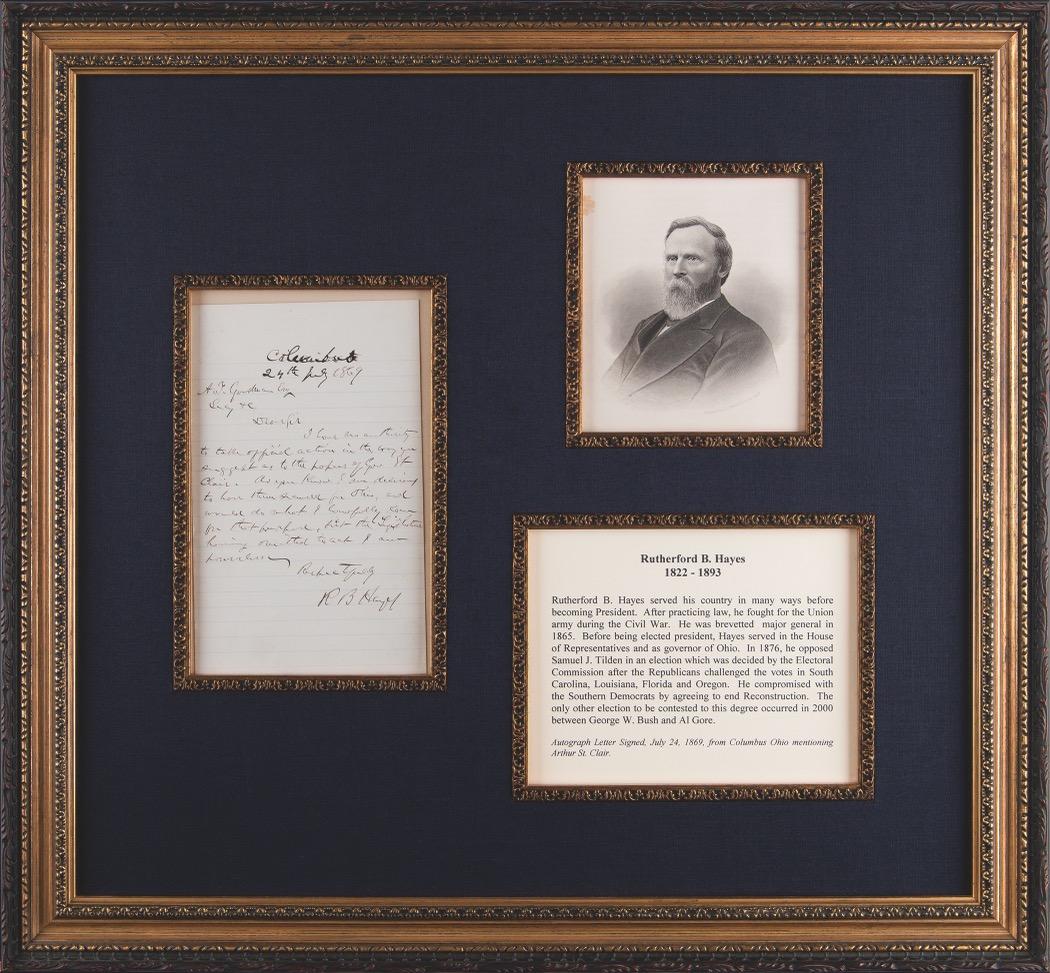 Columbus
24th July 1869
A. T. Goodman Esq
Secy &c
Dear Sir
I have no authority
to take official action in the way you
suggest as to the papers of Gov St
Clair. As you know I am desirous
to have them secured for Ohio, and
would do what I lawfully can
for that purpose, but the Legislature
having omitted to act I am
powerless
Respectfully
R B Hayes
Rutherford B. Hayes
1822 - 1893
Rutherford B. Hayes served his country in many ways before
becoming President. After practicing law, he fought for the Union
army during the Civil War. He was brevetted major general in
1865. Before being elected president, Hayes served in the House
of Representatives and as governor of Ohio. In 1876, he opposed
Samuel J. Tilden in an election which was decided by the Electoral
Commission after the Republicans challenged the votes in South
Carolina, Louisiana, Florida and Oregon. He compromised with
the Southern Democrats by agreeing to end Reconstruction. The
only other election to be contested to this degree occurred in 2000
between George W. Bush and Al Gore.
Autograph Letter Signed, July 24, 1869, from Columbus Ohio mentioning
Arthur St. Clair.